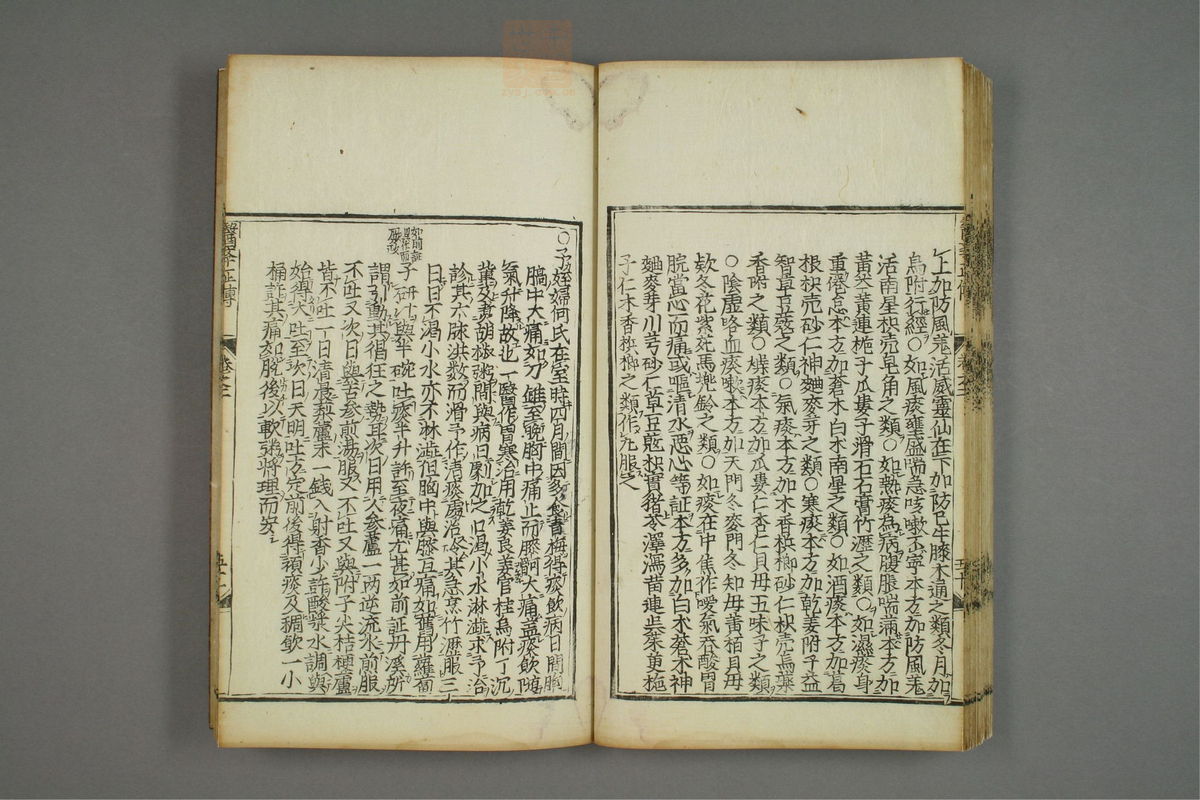 上加防風羗活威靈仙在下加防己牛膝木通之類冬月加
烏附行經○如風痰壅盛喘急咳嗽不寧本方加防風羗
活南星枳壳皂角之類○如熱痰為病腹脹喘滿本方加
黃芩黃連梔子瓜蔞子滑石石膏竹瀝之類○如濕痰身
重倦怠本方加蒼朮白朮南星之類○如酒痰本方加葛
根枳壳砂仁神麯麥芽之類○寒痰本方加乾姜附子益
智草豆蔲之類○氣痰本方加木香梹榔砂仁枳壳烏藥
香附之類○燥痰本方加瓜蔞仁杏仁貝母五味子之類
○陰虛咯血痰嗽本方加天門冬麥門冬知母黃栢貝母
欵冬花紫菀馬兜鈴之類○如痰在中焦作噯氣吞酸胃
脘當心而痛或嘔清水惡心等証本方多加白朮蒼朮神
麯麥芽川芎砂仁草豆蔲枳實猪苓澤瀉黃連吳茱萸梔
子仁木香梹榔之類作丸服之
○予姪婦何氏在室時四月間因多食青梅得痰飲病日間胸
膈中大痛如刀錐至晚胸中痛止而膝䯊大痛盖痰飲隨
氣升降故也一醫作胃寒治用乾姜良姜官桂烏附丁沉
軰及煮胡椒粥間與病日劇加之口渴小水淋澁求予治
診其六脉洪數而滑予作清痰處治令其急烹竹瀝服三
日口不渴小水亦不淋澁但胸中與膝互痛如舊用蘿蔔
子研汁與半碗吐痰半升許至夜痛尤甚如前証丹溪所
謂引動其猖狂之勢耳次日用人參蘆一兩逆流水煎服
不吐又次日與苦參煎湯服又不吐又與附子尖桔梗蘆
皆不吐一日清晨藜蘆末一錢入射香少許酸漿水調與
始得大吐至次日天明吐方定前後得頑痰及稠飲一小
桶許其痛如脫後以軟粥將理而安
醫學正傳
卷之二
五十